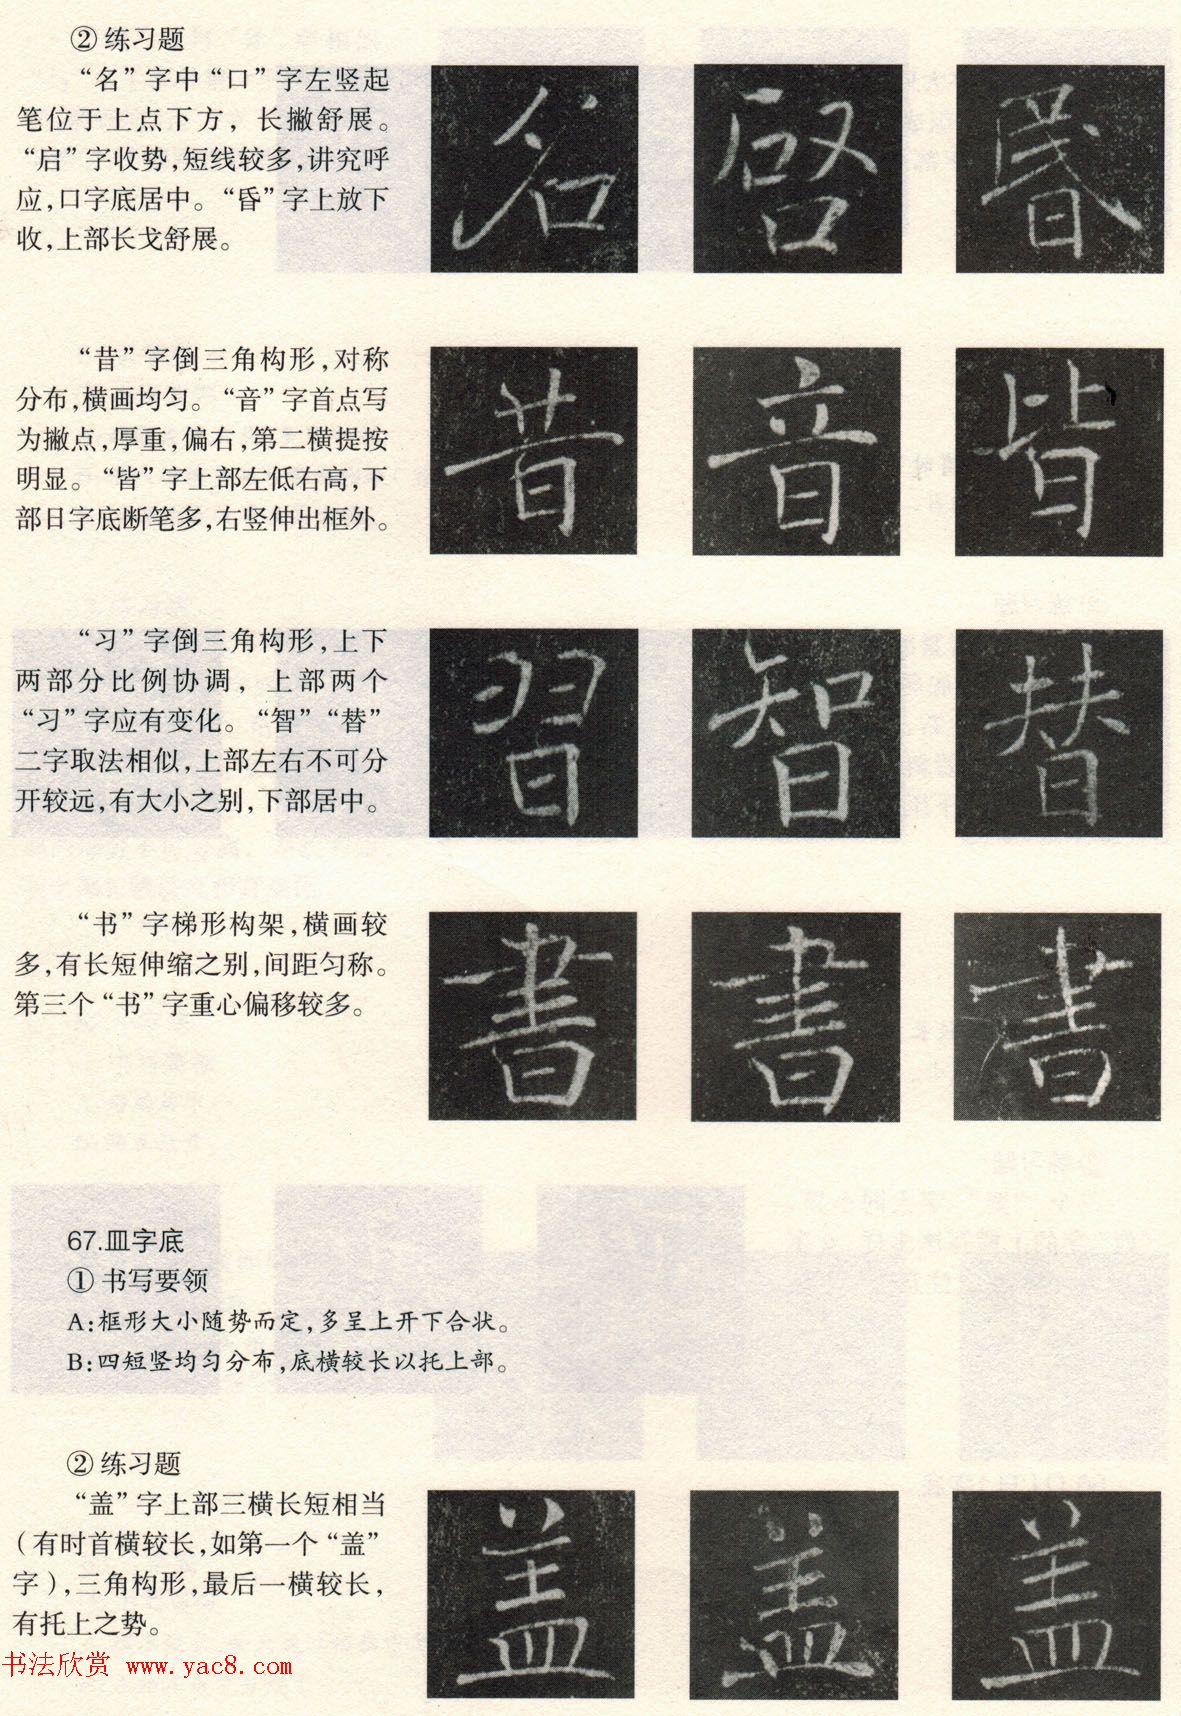 ② 练习题
“名”字中“口”字左竖起
笔位于上点下方，长撇舒展。
“启”字收势，短线较多，讲究呼
应，口字底居中。“昏”字上放下
收，上部长戈舒展。
名 啓 昬
“昔”字倒三角构形，对称
分布，横画均匀。“音”字首点写
为撇点，厚重，偏右，第二横提按
明显。“皆”字上部左低右高，下
部日字底断笔多，右竖伸出框外。
昔 音 皆
“习”字倒三角构形，上下
两部分比例协调，上部两个
“习”字应有变化。“智”“替”
二字取法相似，上部左右不可分
开较远，有大小之别，下部居中。
習 智 替
“书”字梯形构架，横画较
多，有长短伸缩之别，间距匀称。
第三个“书”字重心偏移较多。
書 書 書
67.皿字底
① 书写要领
A：框形大小随势而定，多呈上开下合状。
B：四短竖均匀分布，底横较长以托上部。
② 练习题
“盖”字上部三横长短相当
（有时首横较长，如第一个“盖”
字），三角构形，最后一横较长，
有托上之势。
盖 盖 盖
书法欣赏 www.yac8.com